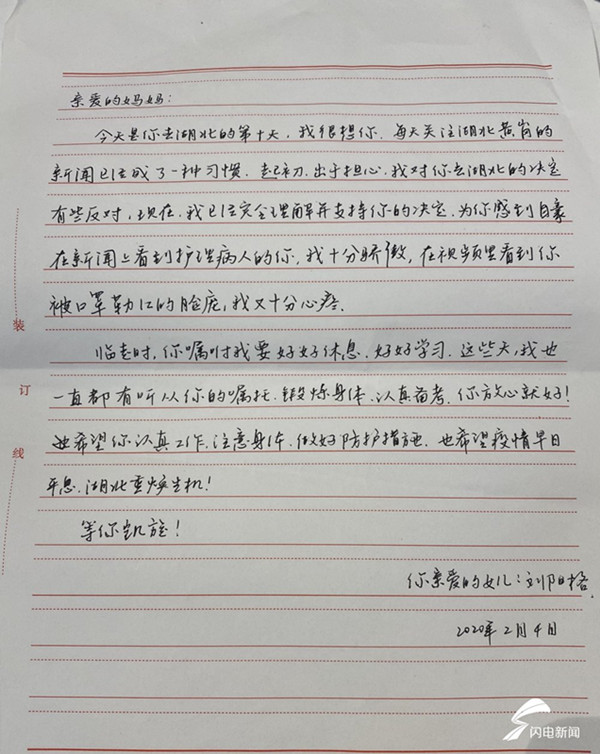 亲爱的妈妈：
今天是你去湖北的第十天，我很想你，每天关注湖北黄岗的
新闻已经成了一种习惯，起初，出于担心，我对你去湖北的决定
有些反对，现在，我已经完全理解并支持你的决定，为你感到自豪
在新闻上看到护理病人的你，我十分骄傲，在视频里看到你
被口罩勒红的脸庞，我又十分心疼。
临走时，你嘱咐我要好好休息，好好学习，这些天，我也
一直都有听从你的嘱托，锻炼身体，认真备考，你放心就好！
也希望你认真工作，注意身体，做好防护措施，也希望疫情早日
平息，湖北重焕生机！
等你凯旋！
你亲爱的女儿：刘阳格
2020年2月4日
装
订
线
闪电新闻